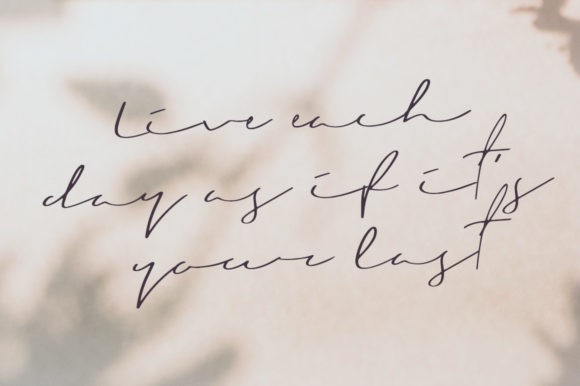 Live each
day as if it's
your last